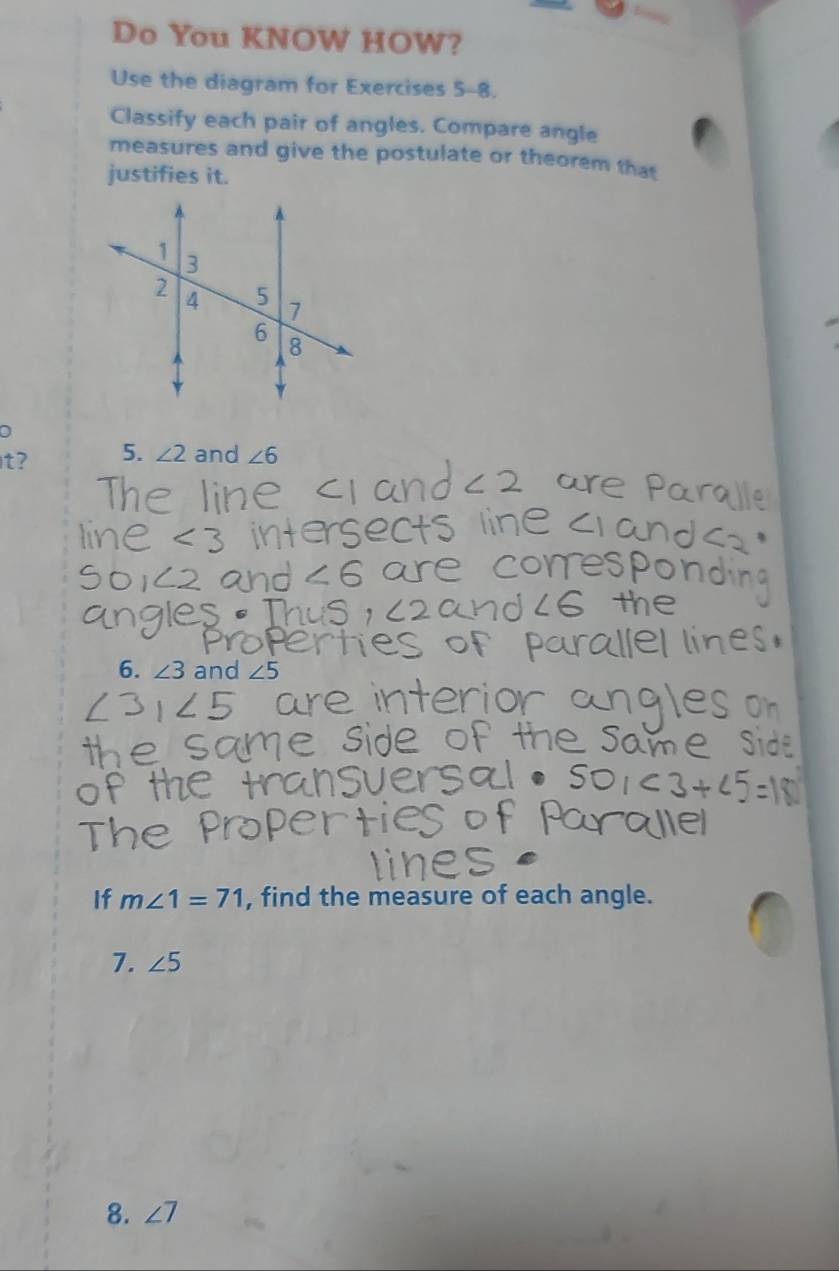 Do You KNOW HOW?
Use the diagram for Exercises 5–8.
Classify each pair of angles. Compare angle
measures and give the postulate or theorem that
justifies it.
1
3
2
4
5
7
6
8
t?
5. ∠2 and ∠6
The line <1 and <2 are Paralle
line <3 intersects line <1 and <2.
so, <2 and <6 are corresponding
angles. Thus, <2 and <6 the
Properties of parallel lines.
6. ∠3 and ∠5
∠3, ∠5 are interior angles on
the same side of the same side
of the transversal. so, <3+<5=180
The Properties of Parallel
lines.
If m∠1 = 71, find the measure of each angle.
7. ∠5
8. ∠7